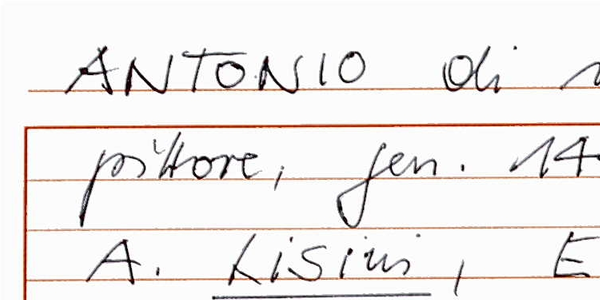 ANTONIO di
pittore, fen. 14
A. Lisini, E